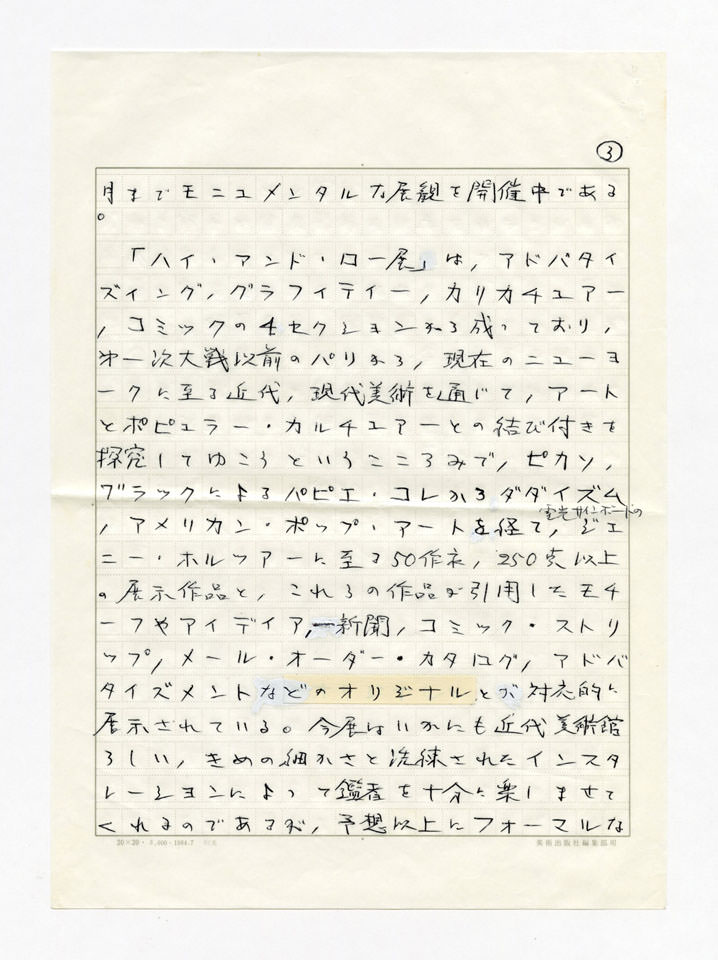 ③
月までモニュメンタルな展観を開催中である
。
「ハイ・アンド・ロー展」は,アドバタイ
ズイング,グラフィティー,カリカチュアー
,コミックの4セクションから成っており,
第一次大戦以前のパリから,現在のニューヨ
ークに至る近代,現代美術を通じて,アート
とポピュラー・カルチュアーとの結び付きを
探究してゆこうというこころみで,ピカソ,
ブラックによるパピエ・コレからダダイズム
電光サインボードの
,アメリカン・ポップ・アートを経て,ジェ
ニー・ホルツアーに至る50作家,250点以上
の展示作品と,これらの作品が引用したモチ
ーフやアイディア,新聞,コミック・ストリ
ップ,メール・オーダー・カタログ,アドバ
タイズメントなどのオリジナルとが対応的に
展示されている。今展はいかにも近代美術館
らしい,きめの細かさと洗練されたインスタ
レーションによって鑑者を十分に楽しませて
くれるのであるが,予想以上にフォーマルな
20×20・
1984.7
美術出版社編集部用